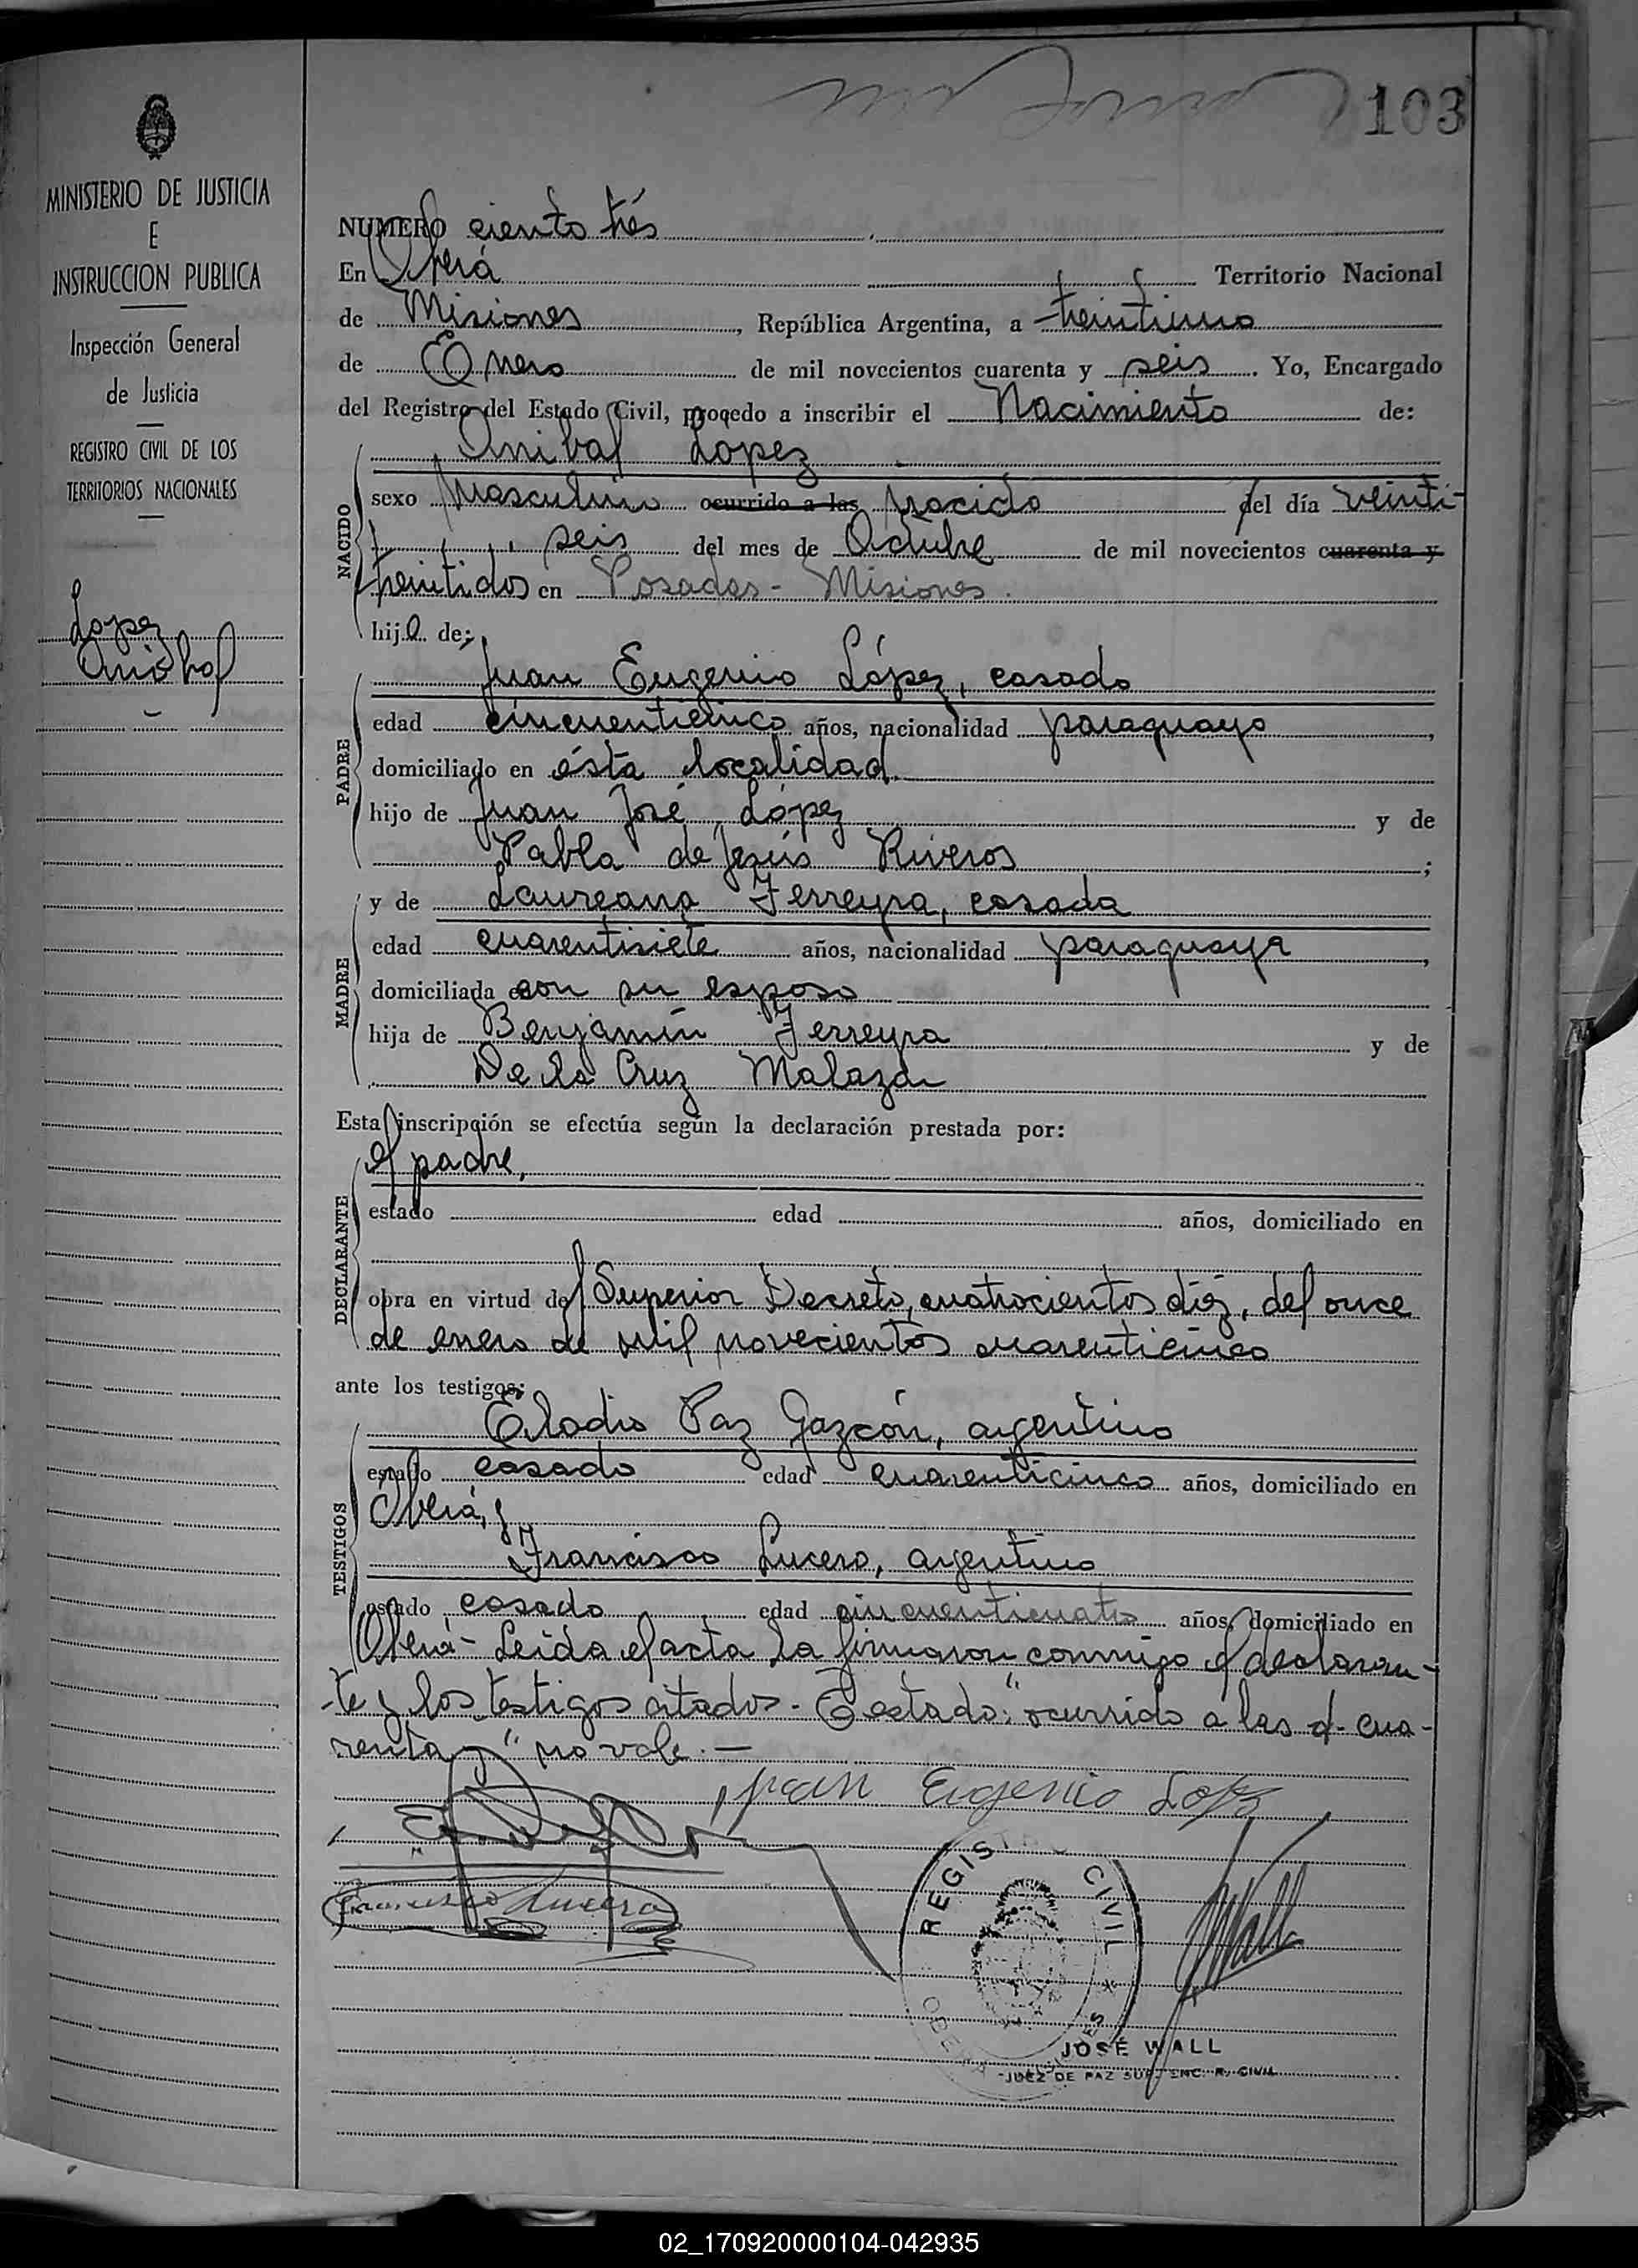 103
MINISTERIO DE JUSTICIA
E
INSTRUCCION PUBLICA
Inspección General
de Justicia
REGISTRO CIVIL DE LOS
TERRITORIOS NACIONALES
Lopez
Anibal
NUMERO ciento trés
En Oberá Territorio Nacional
de Misiones, República Argentina, a treintiuno
de Enero de mil novecientos cuarenta y seis. Yo, Encargado
del Registro del Estado Civil, procedo a inscribir el Nacimiento de:
Anibal Lopez
NACIDO
sexo Masculino ocurrido a las nacido del día veinti-
seis del mes de Octubre de mil novecientos cuarenta y
treintidos en Posadas - Misiones.
hijo de:
PADRE
Juan Eugenio López, casado
edad cincuenticinco años, nacionalidad paraguayo,
domiciliado en ésta localidad.
hijo de Juan José López y de
Pabla de Jesús Riveros;
MADRE
y de Laureana Ferreyra, casada
edad cuarentisiete años, nacionalidad paraguaya,
domiciliada con su esposo
hija de Benjamín Ferreyra y de
De la Cruz Malazar
Esta inscripción se efectúa según la declaración prestada por:
DECLARANTE
el padre,
estado edad años, domiciliado en
obra en virtud del Superior Decreto, cuatrocientos diéz, del once
de enero de mil novecientos cuarenticinco
ante los testigos:
TESTIGOS
Eladio Paz Gazcón, argentino
estado casado edad cuarenticinco años, domiciliado en
Oberá, y
Francisco Lucero, argentino
estado casado edad cincuenticuatro años, domiciliado en
Oberá - Leida el acta la firmaron conmigo el declaran-
te y los testigos citados. - Testado: "ocurrido a las y - cua-
renta y" no vale. -
Juan Eugenio Lopez
Francisco Lucero
REGISTRO CIVIL
Wall
JOSÉ WALL
JUEZ DE PAZ SUP. ENC. R. CIVIL
02_170920000104-042935